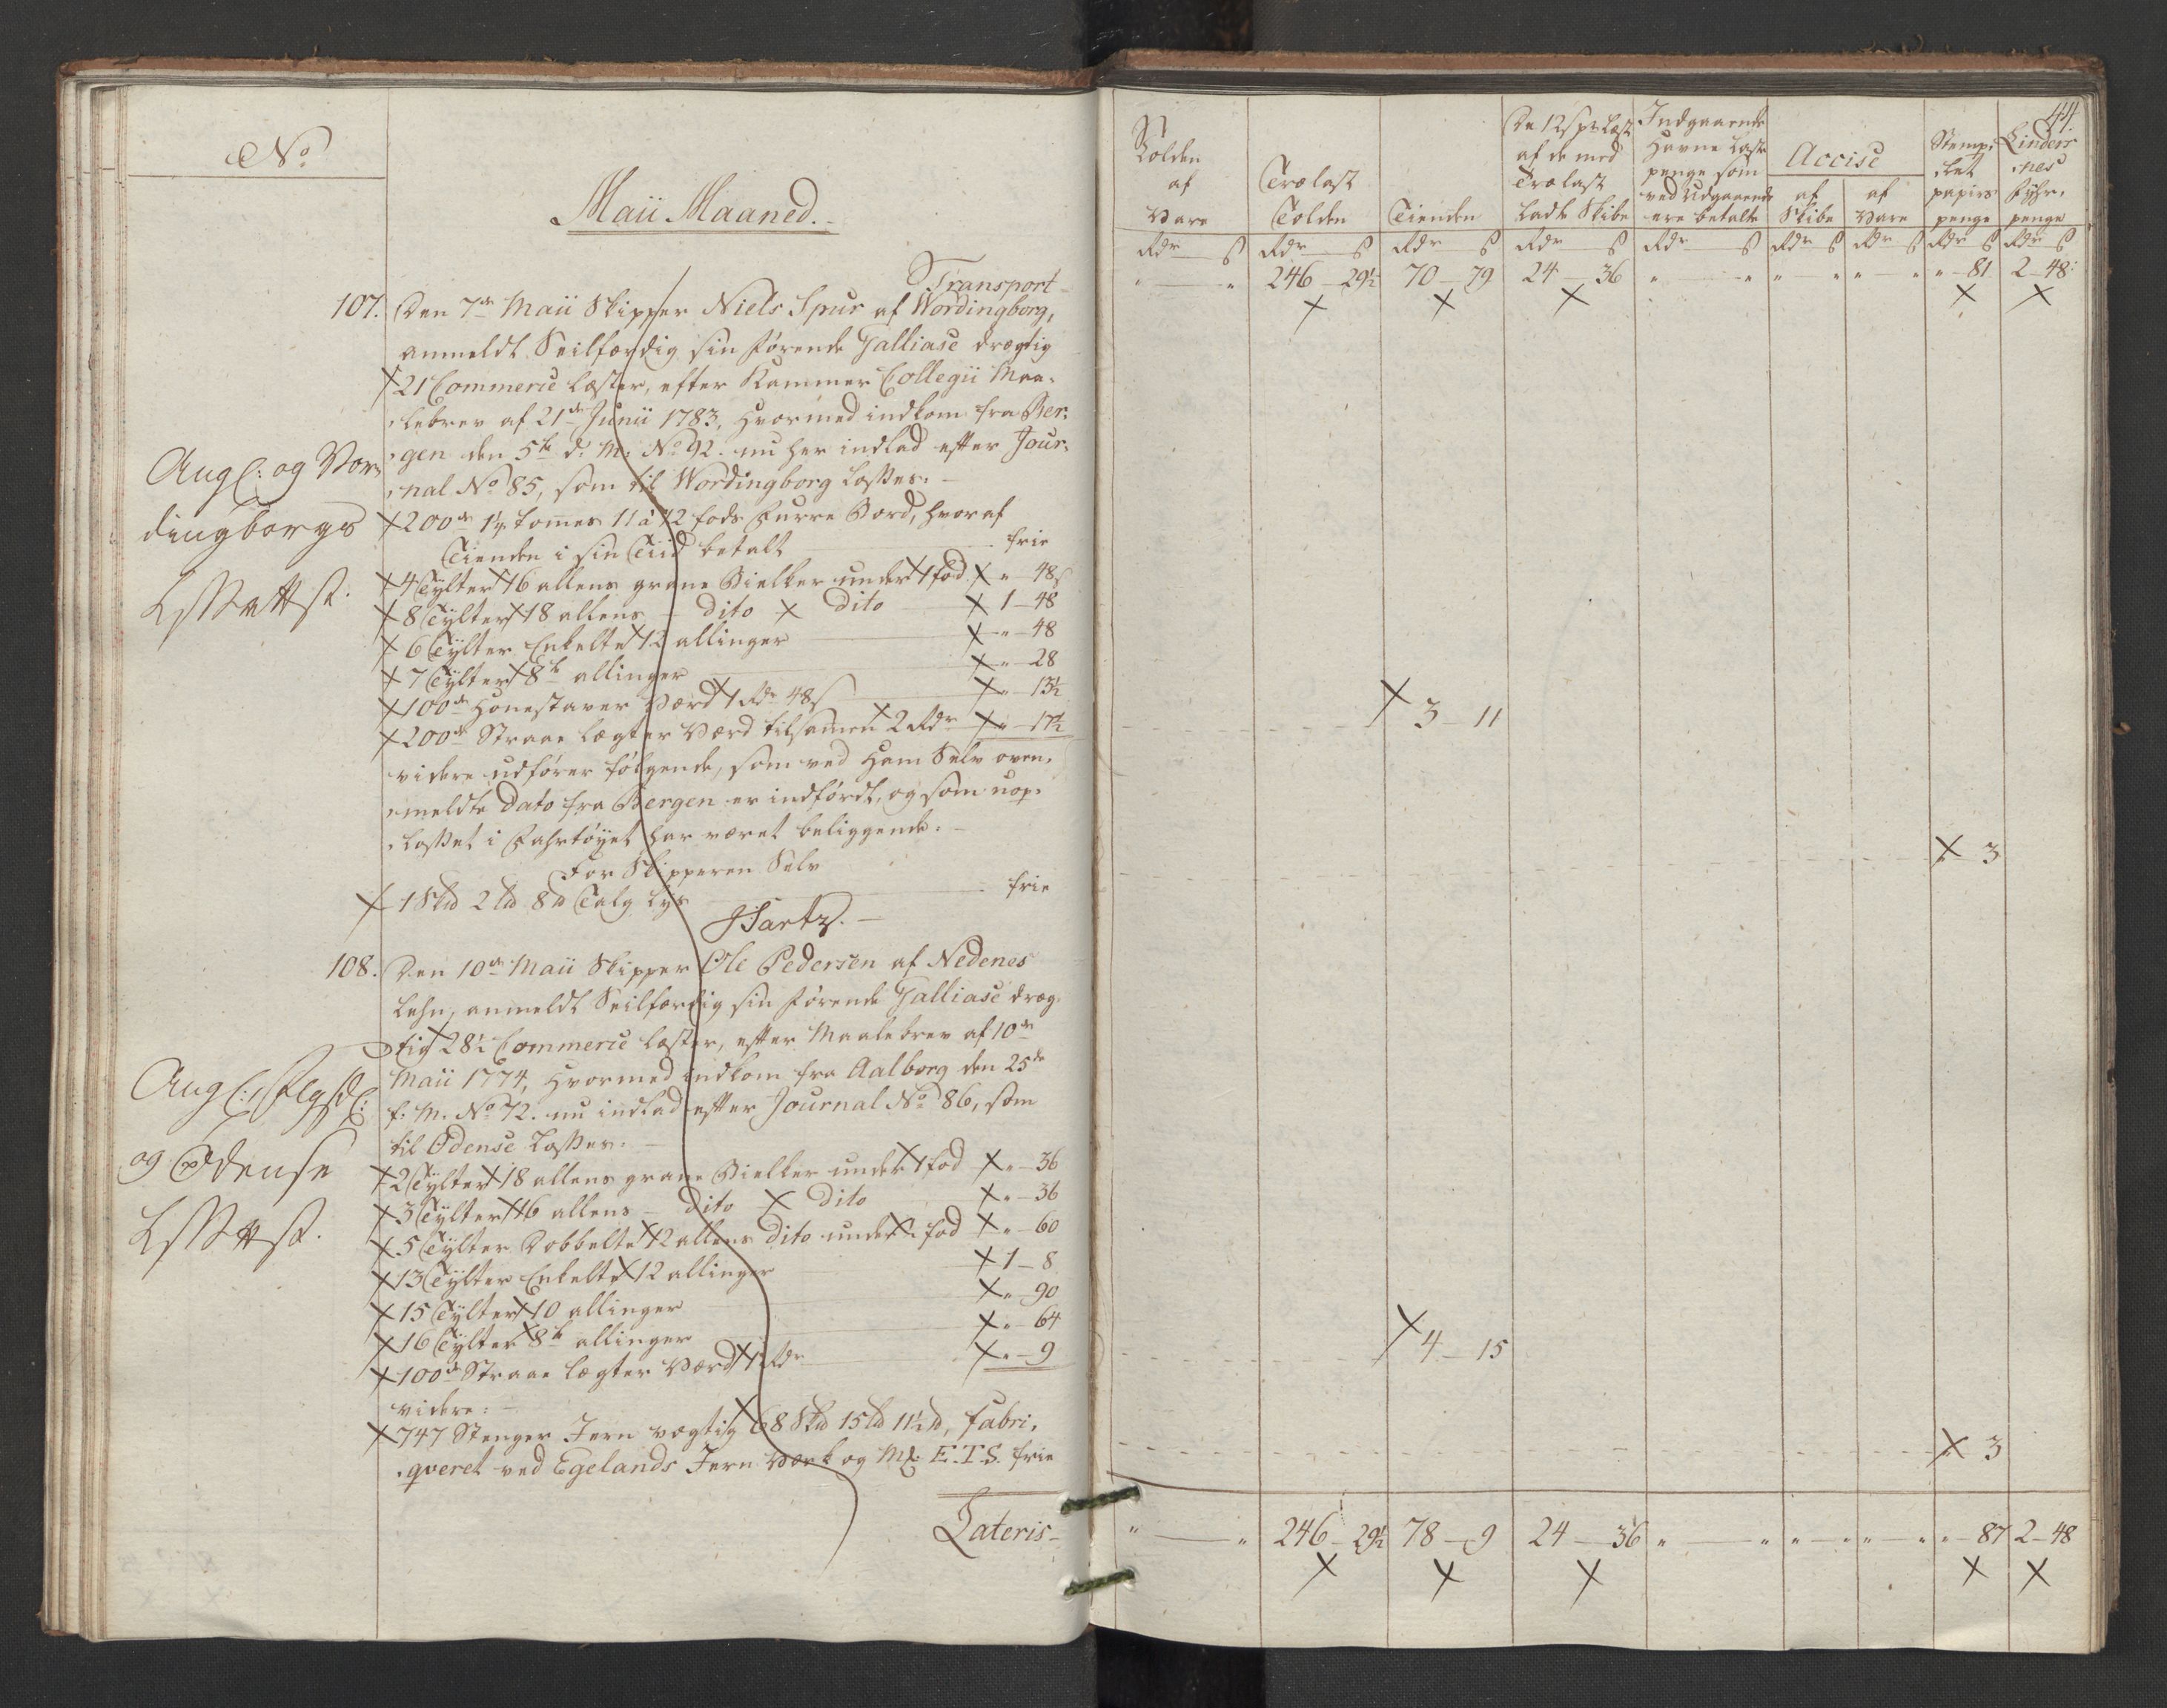 No
Maii Maaned.
Transport
107. Den 7de Maii Skipper Niels Spur af Wordingborg,
anmeldt Seilfærdig sin förende Galliase drægtig
21 Commerie læster, efter Kammer Collegii Maa-
lebrev af 21de Junii 1783, hvormed indkom fra Ber-
gen den 5te d: M: No 92. nu her indlad efter Jour-
nal No 85, som til Wordingborg losses.
200de 1¼ tommes 11 à 12 fods Furre Bord, hvoraf
Tienden i sin Tiid betalt frie
4 Tylter 16 allens grane Bielker under 1 fod " - 48 s
8 Tylter 18 allens - dito dito 1 - 48
6 Tylter Enkelte 12 allinger " - 48
7 Tylter 8te allinger " - 28
100de Honestaver Værd 1 Rdr 48 s " - 13½
200de Straae lægter Værd tilsamen 2 Rdr " - 17½
videre udförer fölgende, som ved Ham Selv oven-
meldte Dato fra Bergen er indfördt, og som uop-
losset i Fahrtöyet har været beliggende.
For Skipperen Selv
1 Skd 2 Ld 8 d Talg lys frie
Hartz.
Angl: og Vor-
dingborgs
108. Den 10de Maii Skipper Ole Pedersen af Nedenes
Lehn, anmeldt Seilfærdig sin förende Galliase dræg-
tig 28½ Commerie læster, efter Maalebrev af 10de
Maii 1774, hvormed indkom fra Aalborg den 25de
f: M. No 72. nu indlad efter Journal No 86, som
til Odense losses.
2 Tylter 18 allens grane Bielker under 1 fod " - 36
3 Tylter 16 allens - dito dito " - 36
5 Tylter Dobbelte 12 allens dito under 1 fod " - 60
13 Tylter Enkelte 12 allinger 1 - 8
15 Tylter 10 allinger " - 90
16 Tylter 8te allinger " - 64
100de Straae lægter Værd 1 Rdr " - 9
videre:
747 Stenger Jern vægtig 68 Skd 15 Ld 11½ d, fabri-
qveret ved Egelands Jern Værk og M: E.T.S. frie
Lateris
Angl:
og Odense
44.
Tolden af Vare
Trælast Tolden
Tienden
De 12 s pr Læst af de med Trælast ladte Skibe
Indgaaende Havne Laste penge som ved Udgaaende ere betalte
Accise
af Skibe
af Vare
Stemp-let papiirs penge
Linders-nes Fyhr-penge
Rdr s Rdr s Rdr s Rdr s Rdr s Rdr s Rdr s Rdr s Rdr s
" " 246 - 29½ 70 - 79 24 - 36 " " " " " " " - 81 2 - 48
3 - 11
3
4 - 15
3
" " 246 - 29½ 78 - 9 24 - 36 " " " " " " " - 87 2 - 48